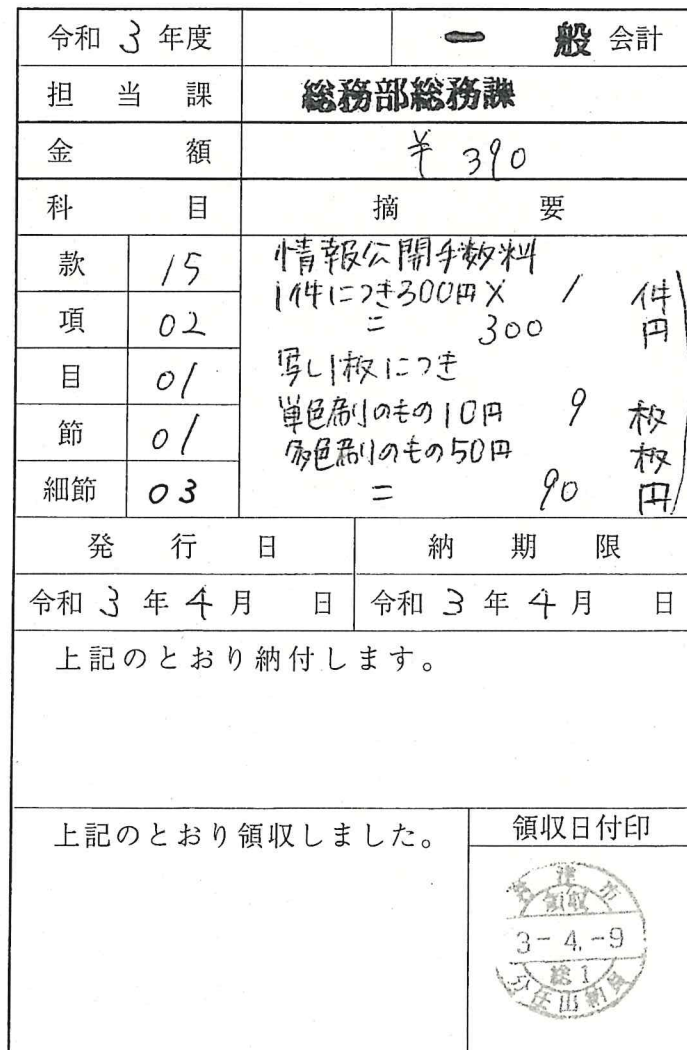 令和 3 年度 一般 会計
担当課 総務部総務課
金額 ¥390
科目 摘要
款 15
項 02
目 01
節 01
細節 03
情報公開手数料
1件につき300円× 1 件
= 300 円
写し1枚につき
単色刷りのもの10円 9 枚
多色刷りのもの50円 枚
= 90 円
発行日 納期限
令和 3 年 4 月 日 令和 3 年 4 月 日
上記のとおり納付します。
上記のとおり領収しました。
領収日付印
領収
3-4.-9
総1